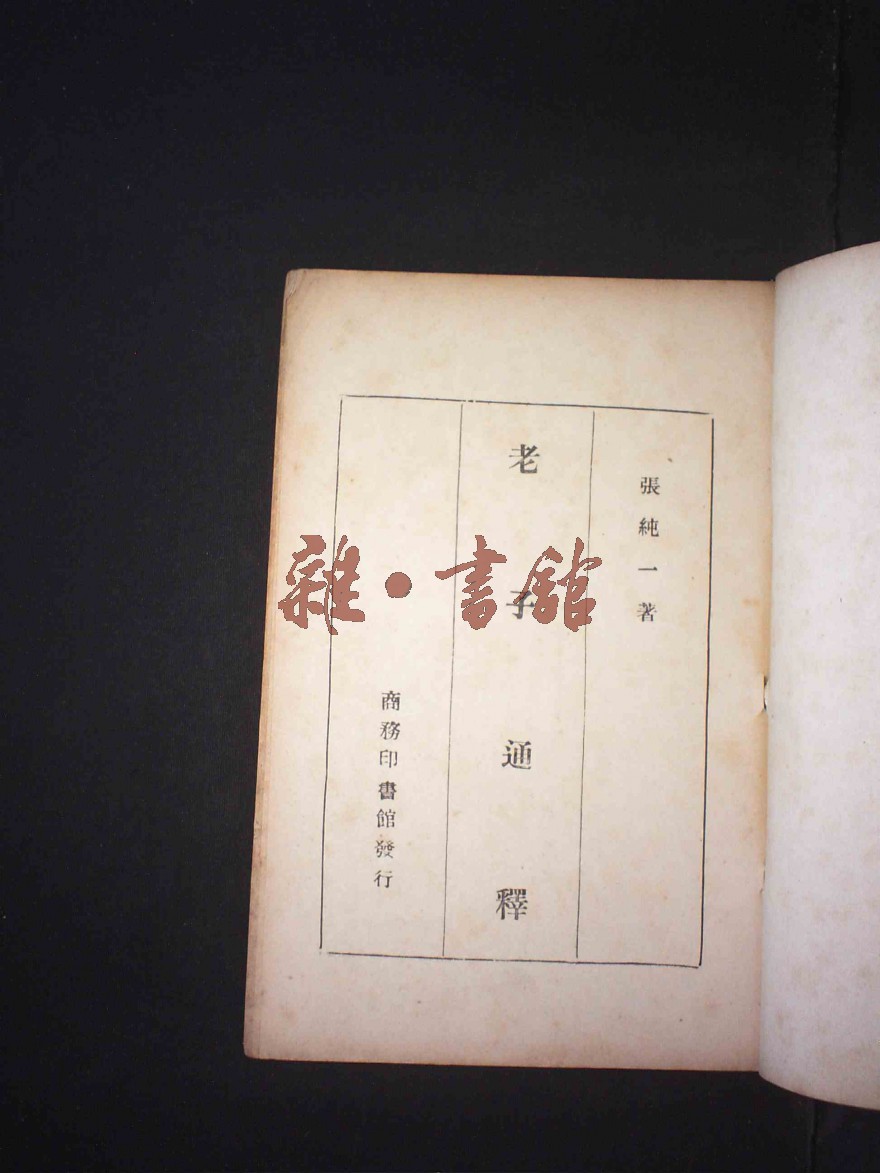 張純一著
老子通釋
商務印書館發行
雜·書館